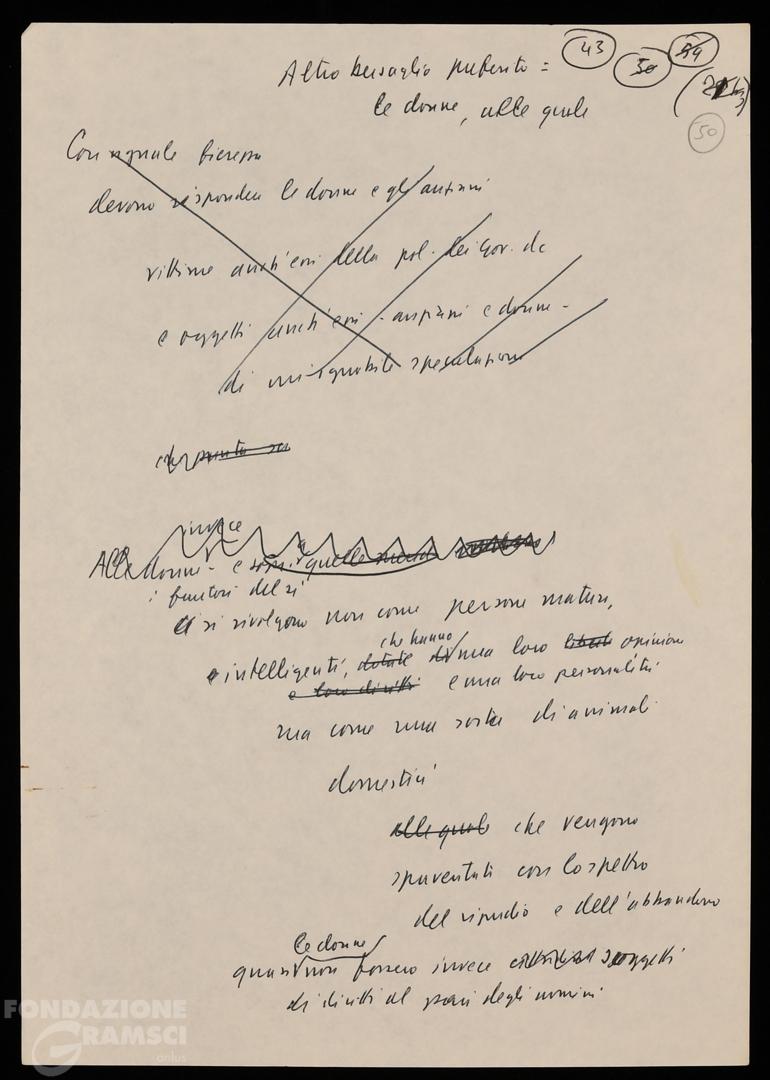 43 50 54
Altro bersaglio preferito =
le donne, alle quali
50
Con uguale fierezza
devono rispondere le donne e gli anziani
vittime anch'essi della pol. dei Gov. dc
e oggetti anch'essi - anziani e donne -
di un'ignobile speculazione
invece
Alle donne - e quelle
i fautori del sì
si rivolgono non come persone mature,
che hanno
e intelligenti, dotate di una loro libertà opinione
e loro diritti e una loro personalità
ma come una sorta di animali
domestici
alle quali che vengono
spaventati con lo spettro
del ripudio e dell'abbandono
le donne
quasi non fossero invece soggetti
di diritti al pari degli uomini
FONDAZIONE
GRAMSCI
onlus